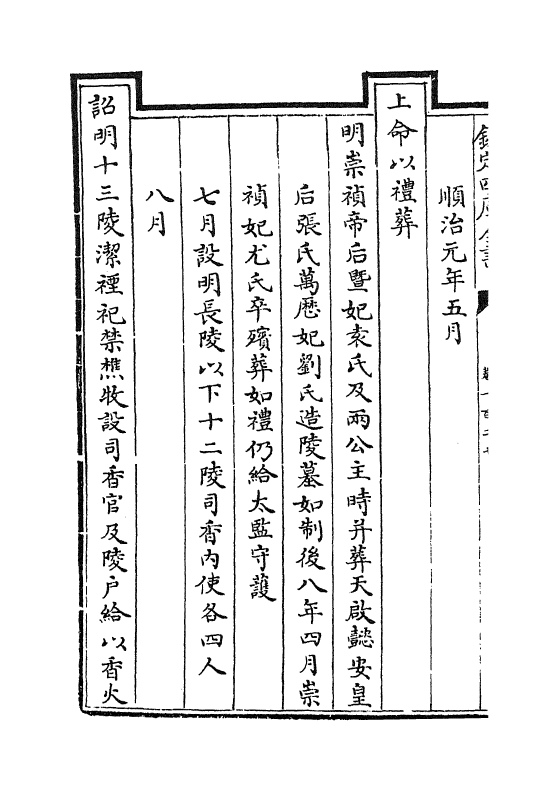 欽定四庫全書
順治元年五月
上命以禮葬
明崇禎帝后暨妃袁氏及兩公主時并葬天啟懿安皇
后張氏萬厯妃劉氏造陵墓如制後八年四月崇
禎妃尤氏卒殯葬如禮仍給太監守護
七月設明長陵以下十二陵司香內使各四人
八月
詔明十三陵潔禋祀禁樵牧設司香官及陵户給以香火